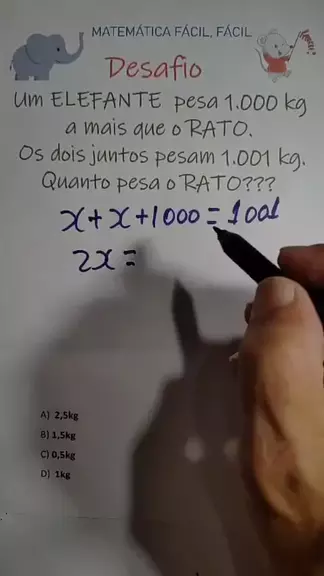 MATEMÁTICA FÁCIL, FÁCIL
Desafio
Um ELEFANTE pesa 1.000 kg
a mais que o RATO.
Os dois juntos pesam 1.001 kg.
Quanto pesa o RATO???
x+x+1000=1001
2x=
A) 2,5kg
B) 1,5kg
C) 0,5kg
D) 1kg